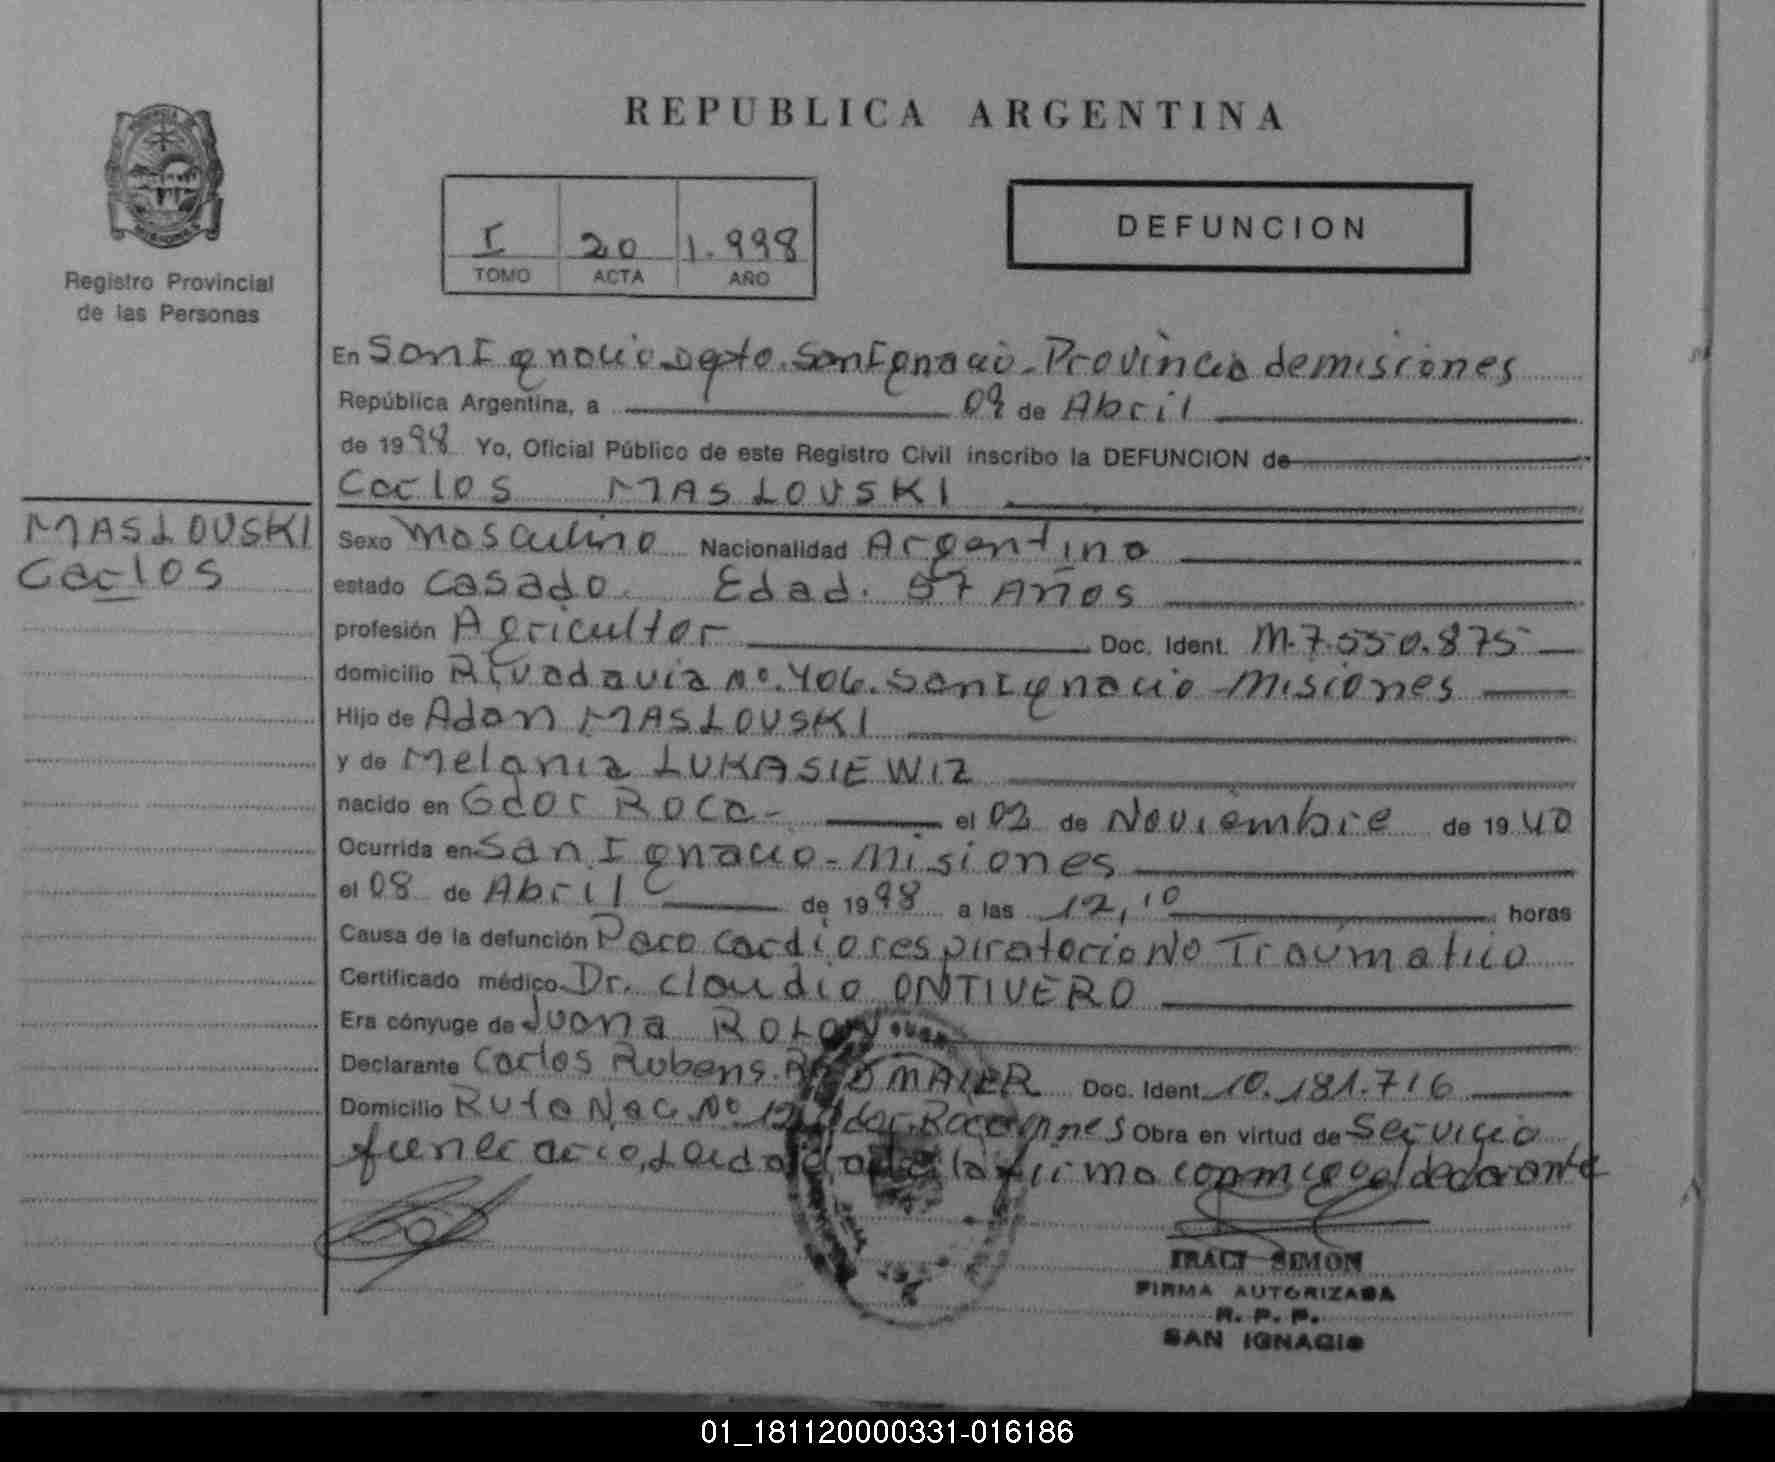 REPUBLICA ARGENTINA
I 20 1.998
TOMO ACTA AÑO
DEFUNCION
Registro Provincial
de las Personas
MASLOUSKI
Carlos
En San Ignacio Dpto. San Ignacio. Provincia de misiones
República Argentina, a 09 de Abril
de 1998 Yo, Oficial Público de este Registro Civil inscribo la DEFUNCION de
Carlos MASLOUSKI
Sexo Masculino Nacionalidad Argentino
estado Casado. Edad. 57 Años
profesión Agricultor Doc. Ident. M.7.550.875
domicilio Rivadavia Nº.406. San Ignacio - Misiones
Hijo de Adan MASLOUSKI
y de Melania LUKASIEWIZ
nacido en Gdor Roca- el 02 de Noviembre de 1940
Ocurrida en San Ignacio - Misiones
el 08 de Abril de 1998 a las 12,10 horas
Causa de la defunción Paro Cardiorespiratorio No Traumatico
Certificado médico Dr. Claudio ONTIVERO
Era cónyuge de Juana ROLON
Declarante Carlos Rubens. Doc. Ident. 10.181.716
Domicilio Ruta Nac. Nº 12 Gdor. Roca mnes Obra en virtud de Servicio
funerario, Leida el acta la firma conmigo el declarante
IRACI SIMON
FIRMA AUTORIZADA
R. P. P.
SAN IGNACIO
01_181120000331-016186